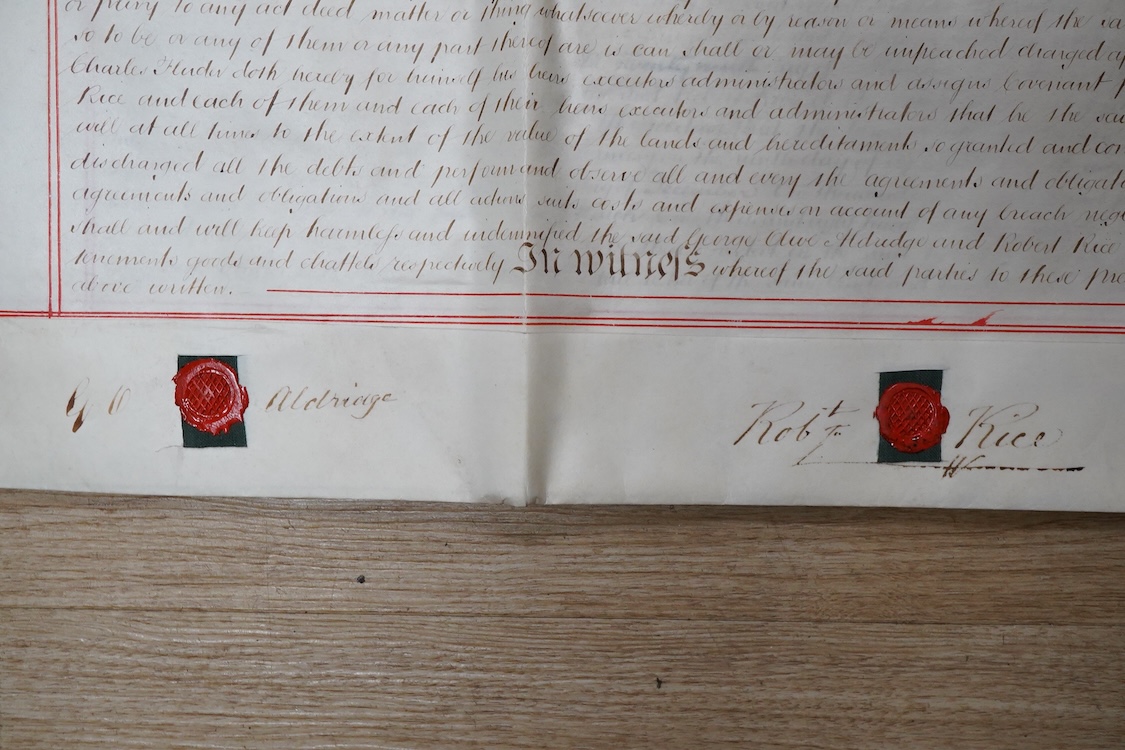 or privy to any act deed matter or thing whatsoever whereby or by reason or means whereof the sa
so to be or any of them or any part thereof are is can shall or may be impeached charged
Charles doth hereby for himself his heirs executors administrators and assigns Covenant
Rice and each of them and each of their heirs executors and administrators that he the
will at all times to the extent of the value of the lands and hereditaments so granted and con
discharged all the debts and perform and observe all and every the agreements and obligati
agreements and obligations and all actions suits costs and expenses on account of any breach neg
shall and will keep harmless and indemnified the said George Clive Aldridge and Robert Rice
tenements goods and chattels respectively In witness whereof the said parties to these pre
above written.
G C Aldridge
Robt Rice